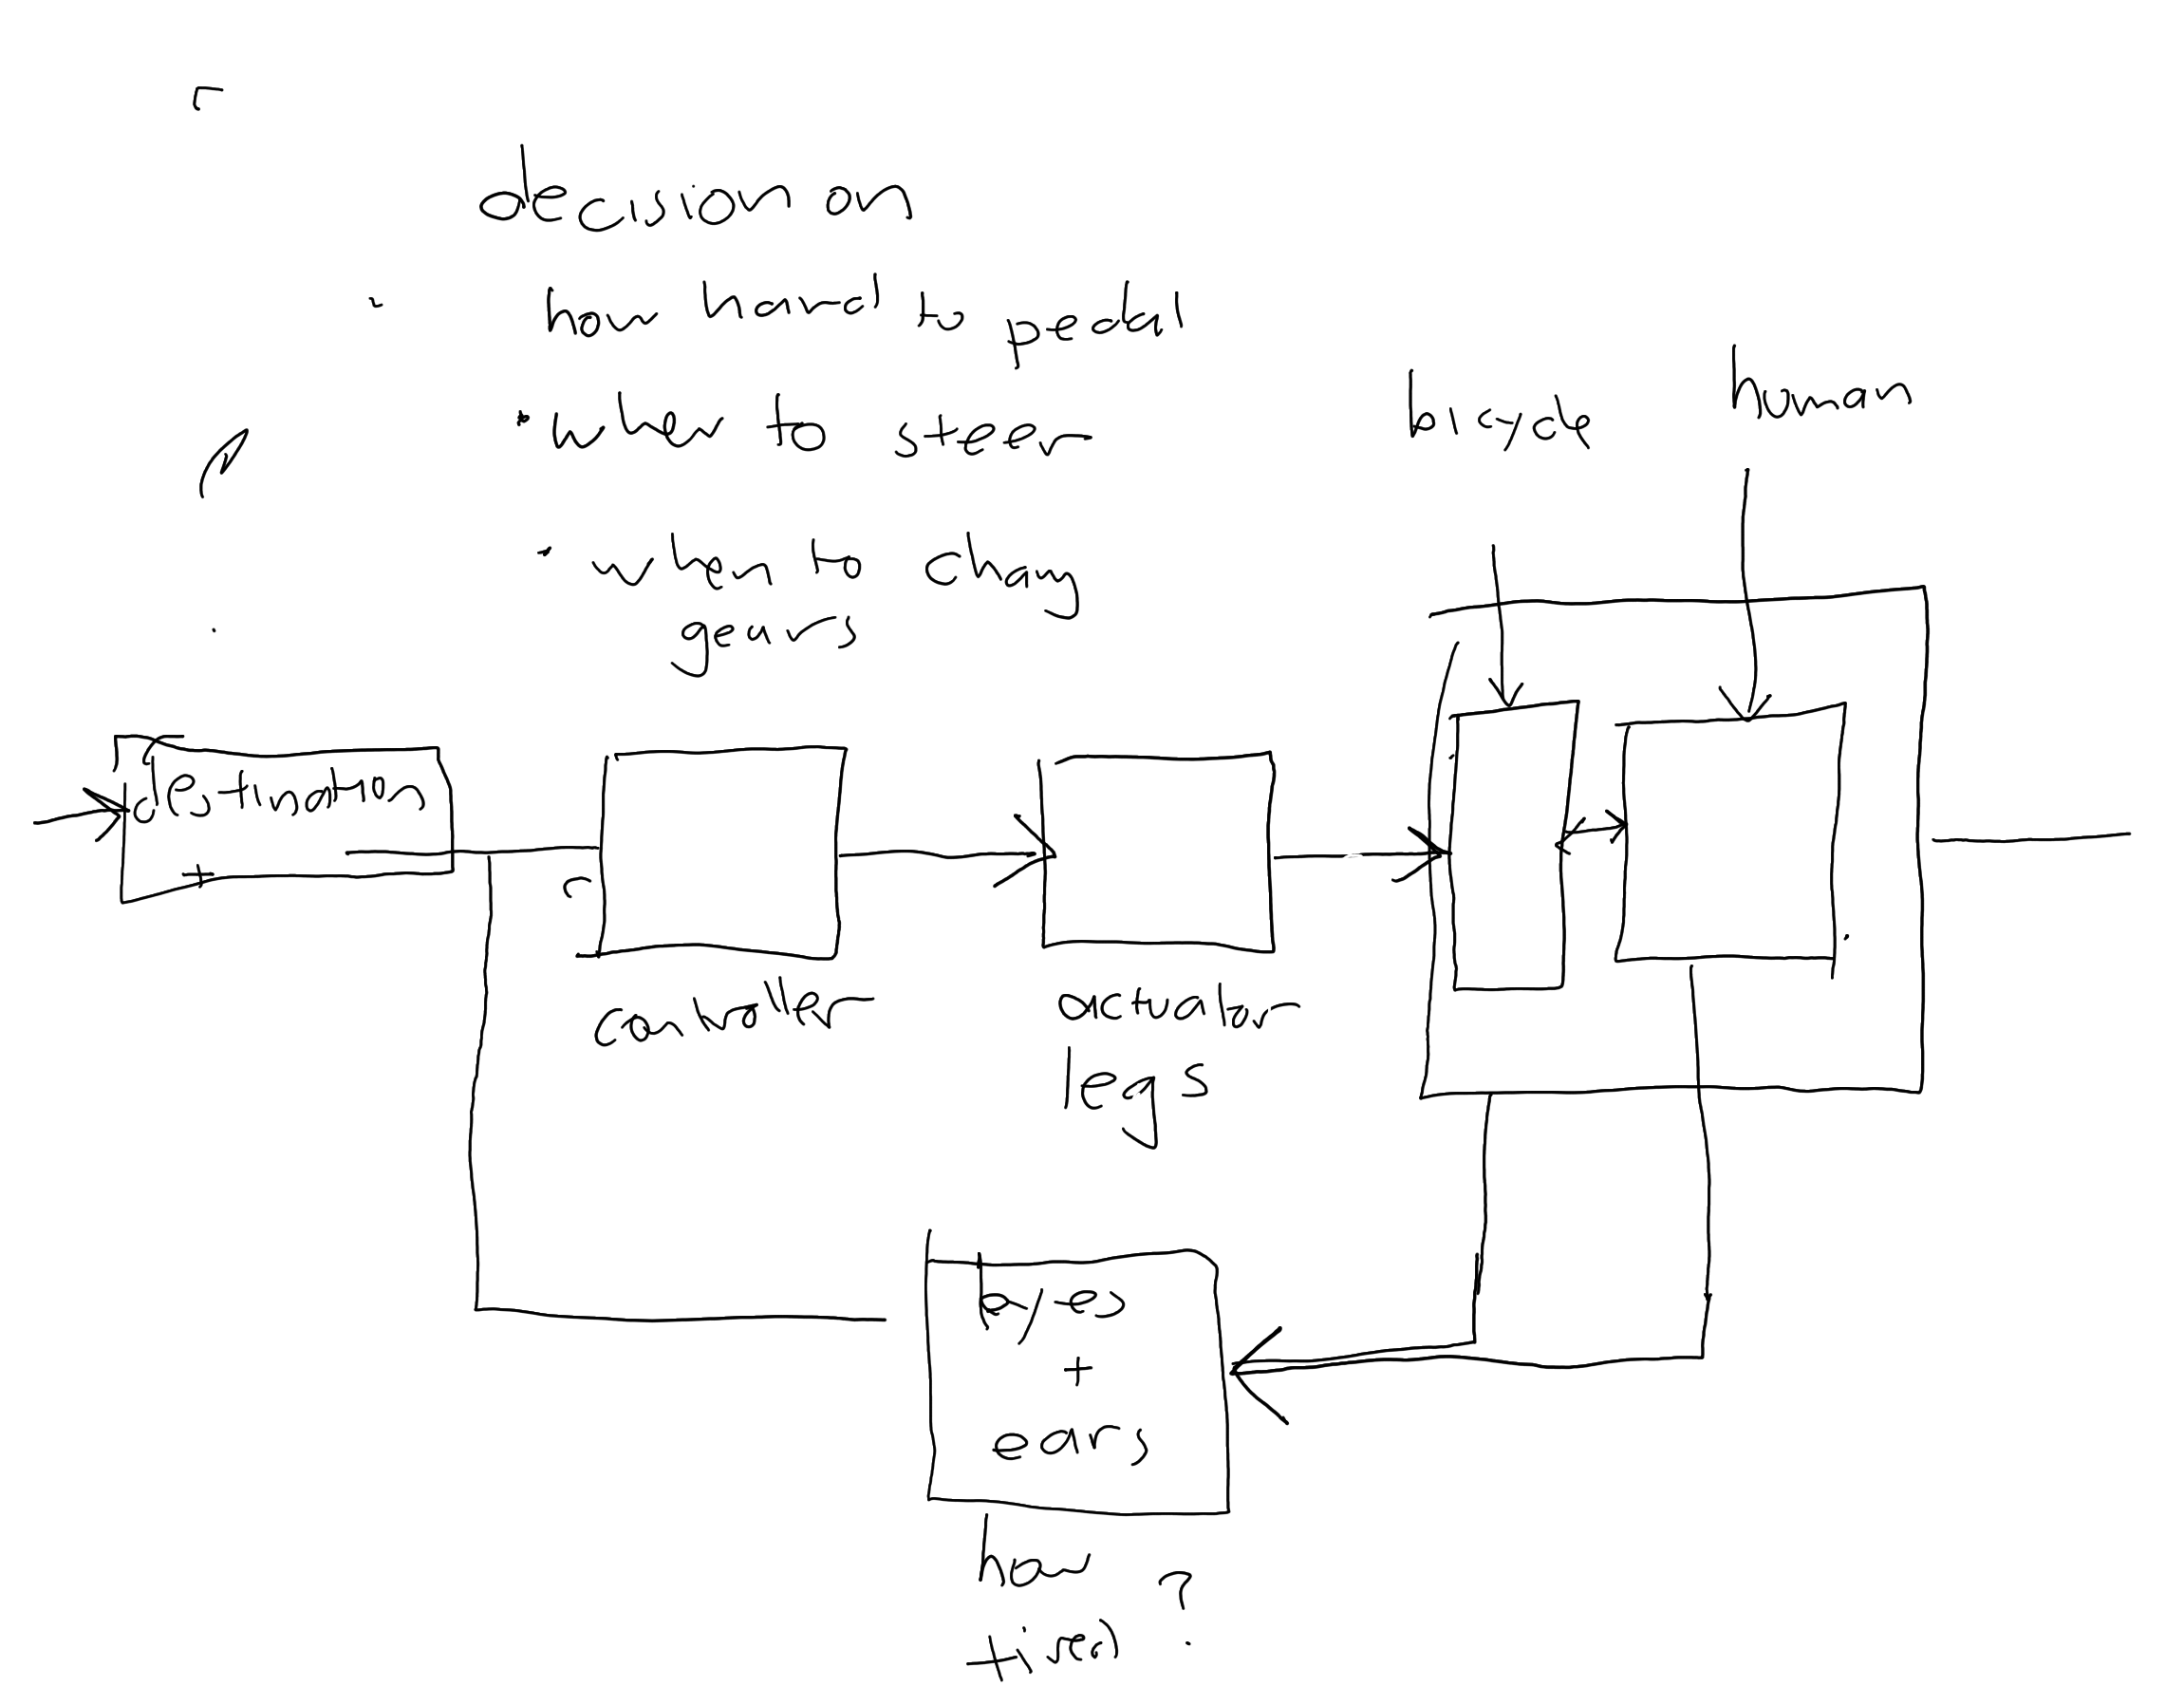 decision on
how hard to pedal
• when to steer
• when to chang
gears
bicycle
human
destination
+
controller
actuator
legs
eyes
+
ears
how
tired ?